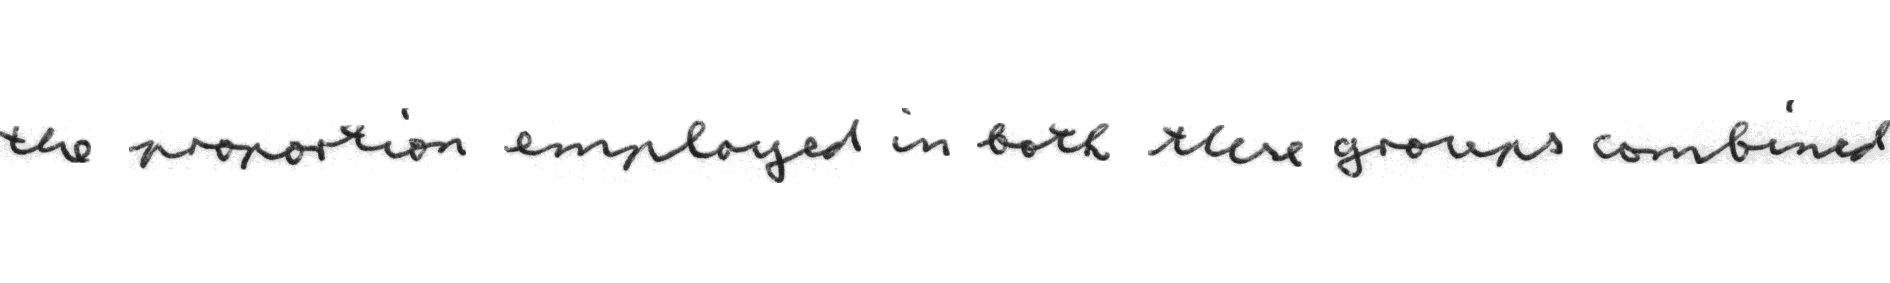 the proportion employed in both these groups combined